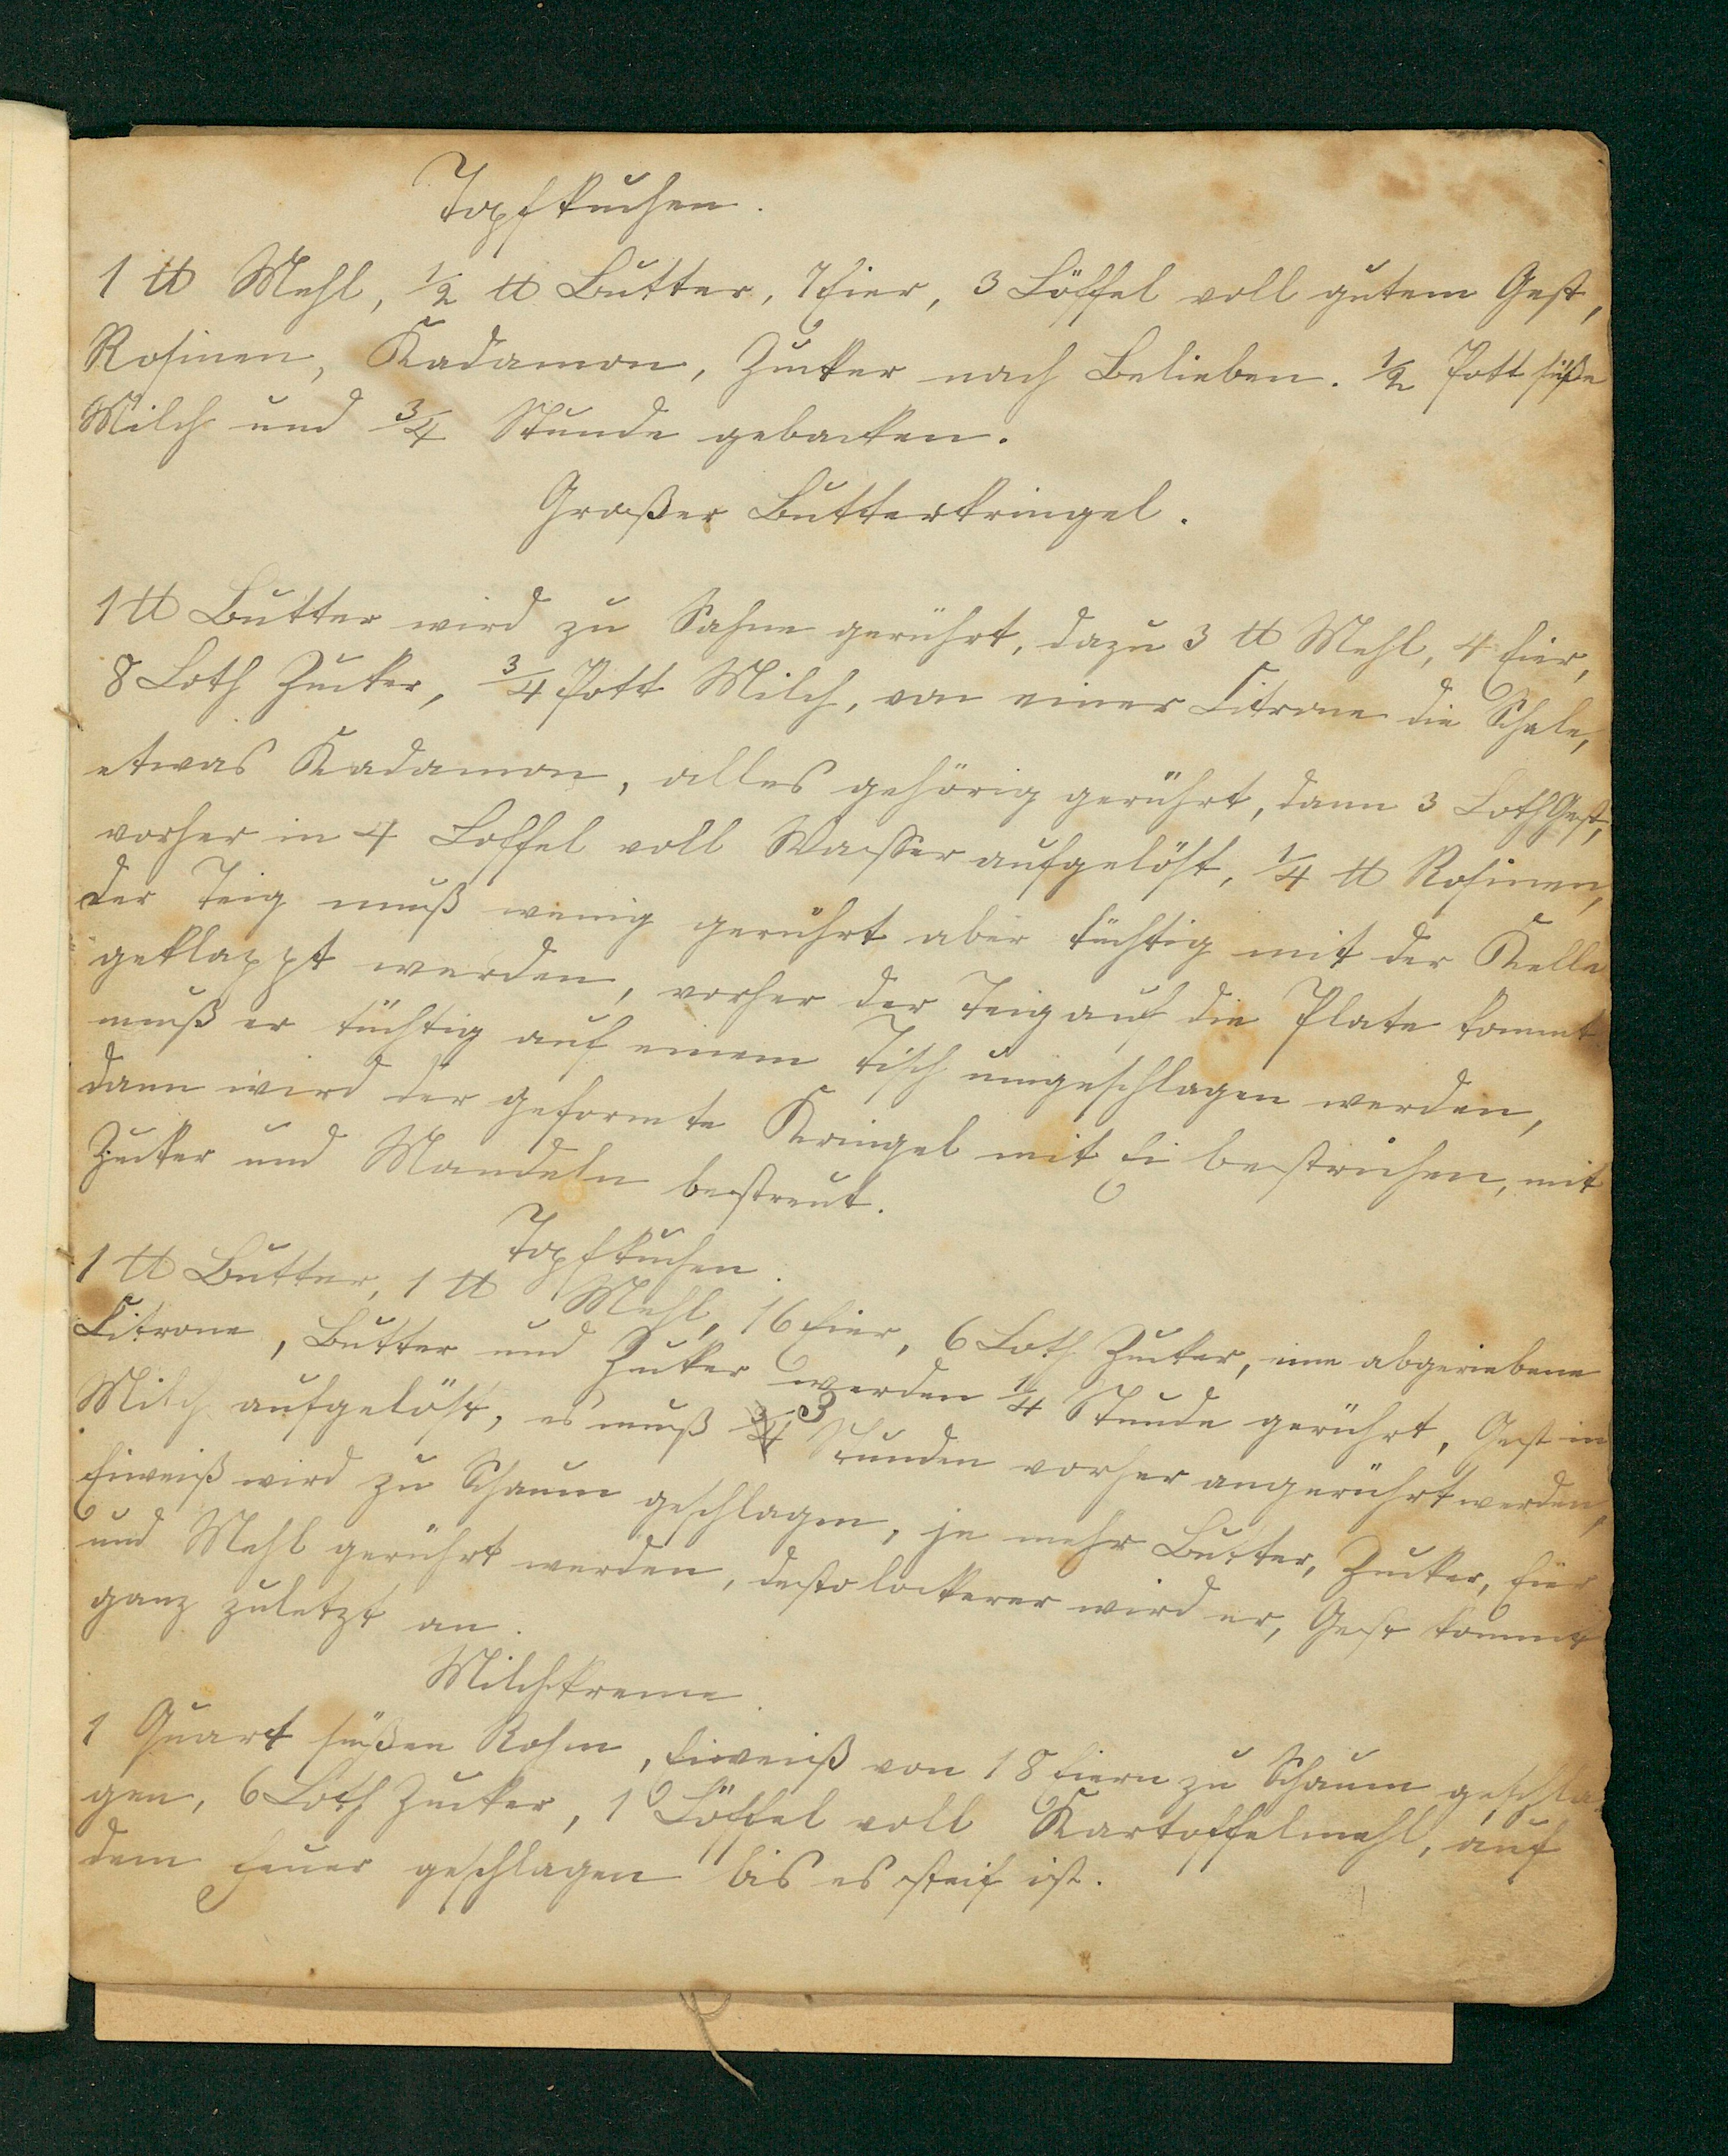 Topfkuchen.
1 ℔ Mehl, ½ ℔ Butter, 7 Eier, 3 Löffel voll gutem Gest,
Rosinen, Kadamon, Zucker nach Belieben. ½ Pott süße
Milch und ¾ Stunde gebacken.
Großer Butterkringel.
1 ℔ Butter wird zu Sahne gerührt, dazu 3 ℔ Mehl, 4 Eier,
8 Loth Zucker, ¾ Pott Milch, von einer Citrone die Schale,
etwas Kadamon, alles gehörig gerührt, dann 3 Loth Gest,
vorher in 4 Loffel voll Wasser aufgelöst, ¼ ℔ Rosinen,
der Teig muß wenig gerührt aber tüchtig mit der Kelle
geklappt werden, vorher der Teig auf die Plate kommt
muß er tüchtig auf einem Tisch umgeschlagen werden,
dann wird der geformte Kringel mit Ei bestrichen, mit
Zucker und Mandeln bestreut.
Topfkuchen.
1 ℔ Butter, 1 ℔ Mehl, 16 Eier, 6 Loth Zucker, eine abgeriebene
Citrone, Butter und Zucker werden ¼ Stunde gerührt, Gest in
Milch aufgelöst, es muß 3 Stunden vorher angerührt werden,
Eiweiß wird zu Schaum geschlagen, je mehr Butter, Zucker, Eier
und Mehl gerührt werden, desto lockerer wird er, Gest kommt
ganz zuletzt an.
Milchkreme.
1 Quart süßen Rohm, Eiweiß von 18 Eiern zu Schaum geschla-
gen, 6 Loth Zucker, 1 Löffel voll Kartoffelmehl, auf
dem Feuer geschlagen bis es steif ist.